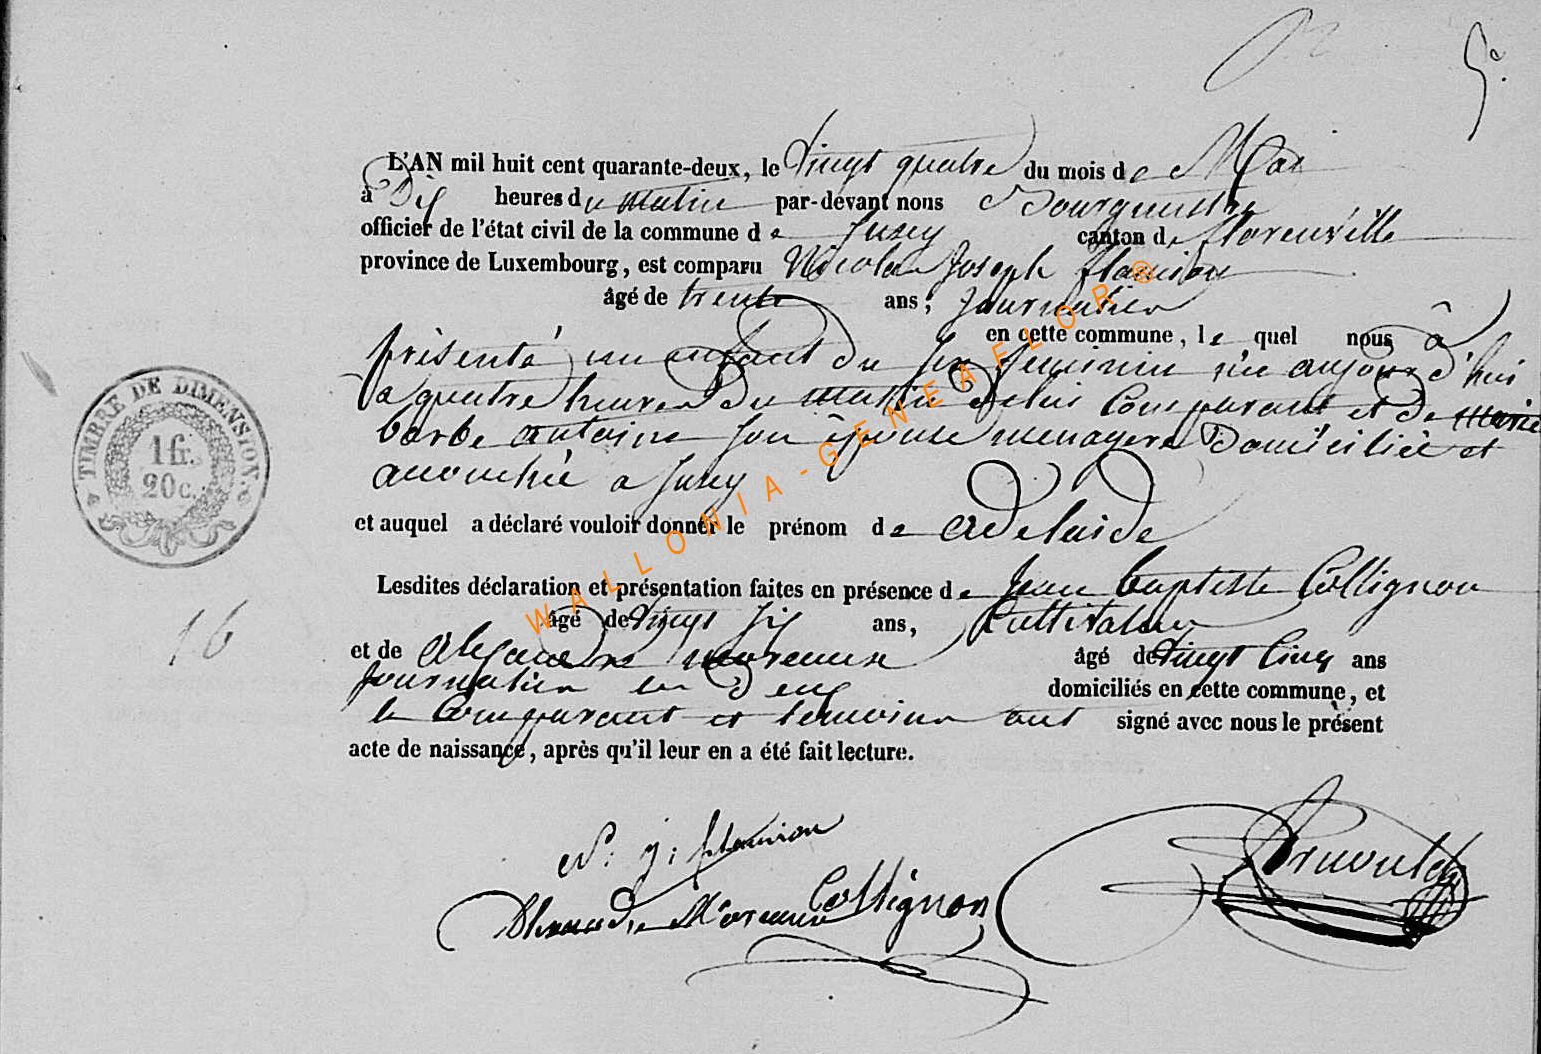 5e.
L'AN mil huit cent quarante-deux, le vingt quatre du mois de Mai
à Dix heures du matin par-devant nous Bourguestre
officier de l'état civil de la commune de canton de florenville
province de Luxembourg, est comparu Nicolas Joseph flamion
âgé de trente ans, Journalier
en cette commune, le quel nous à
présenté un enfant du sex feminin née aujourd'hui
a quatre heures du matin de lui Comparant et de marie
barbe antoine son épouse menagere Domiciliée et
accouchée a
et auquel a déclaré vouloir donner le prénom de adelaide
Lesdites déclaration et présentation faites en présence de Jean baptiste Collignon
âgé de vingt six ans, Cultivateur
et de alexandre moreaux âgé de vingt Cinq ans
Journalier les deux domiciliés en cette commune, et
le Comparant et temoins ont signé avec nous le présent
acte de naissance, après qu'il leur en a été fait lecture.
TIMBRE DE DIMENSION.
1 fr.
20 c.
16
N: j: flamion
Collignon
Alexandre Moreaux
WALLONIA-GENEAELOR®